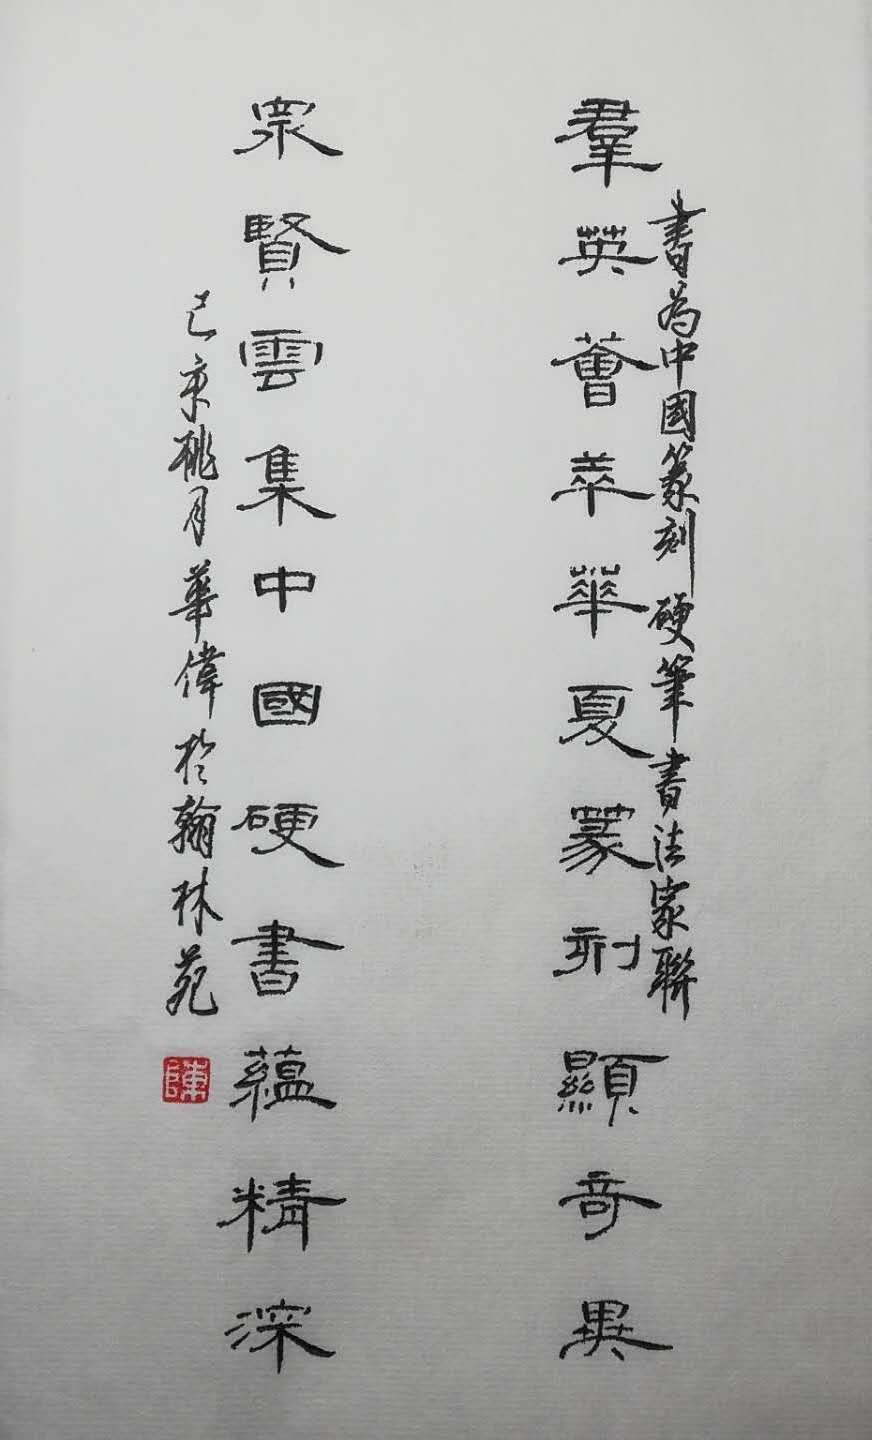 書為中國篆刻硬筆書法家聯
羣英薈萃華夏篆刻顯奇異
眾賢雲集中國硬書藴精深
己亥桃月華偉於翰林苑
陳